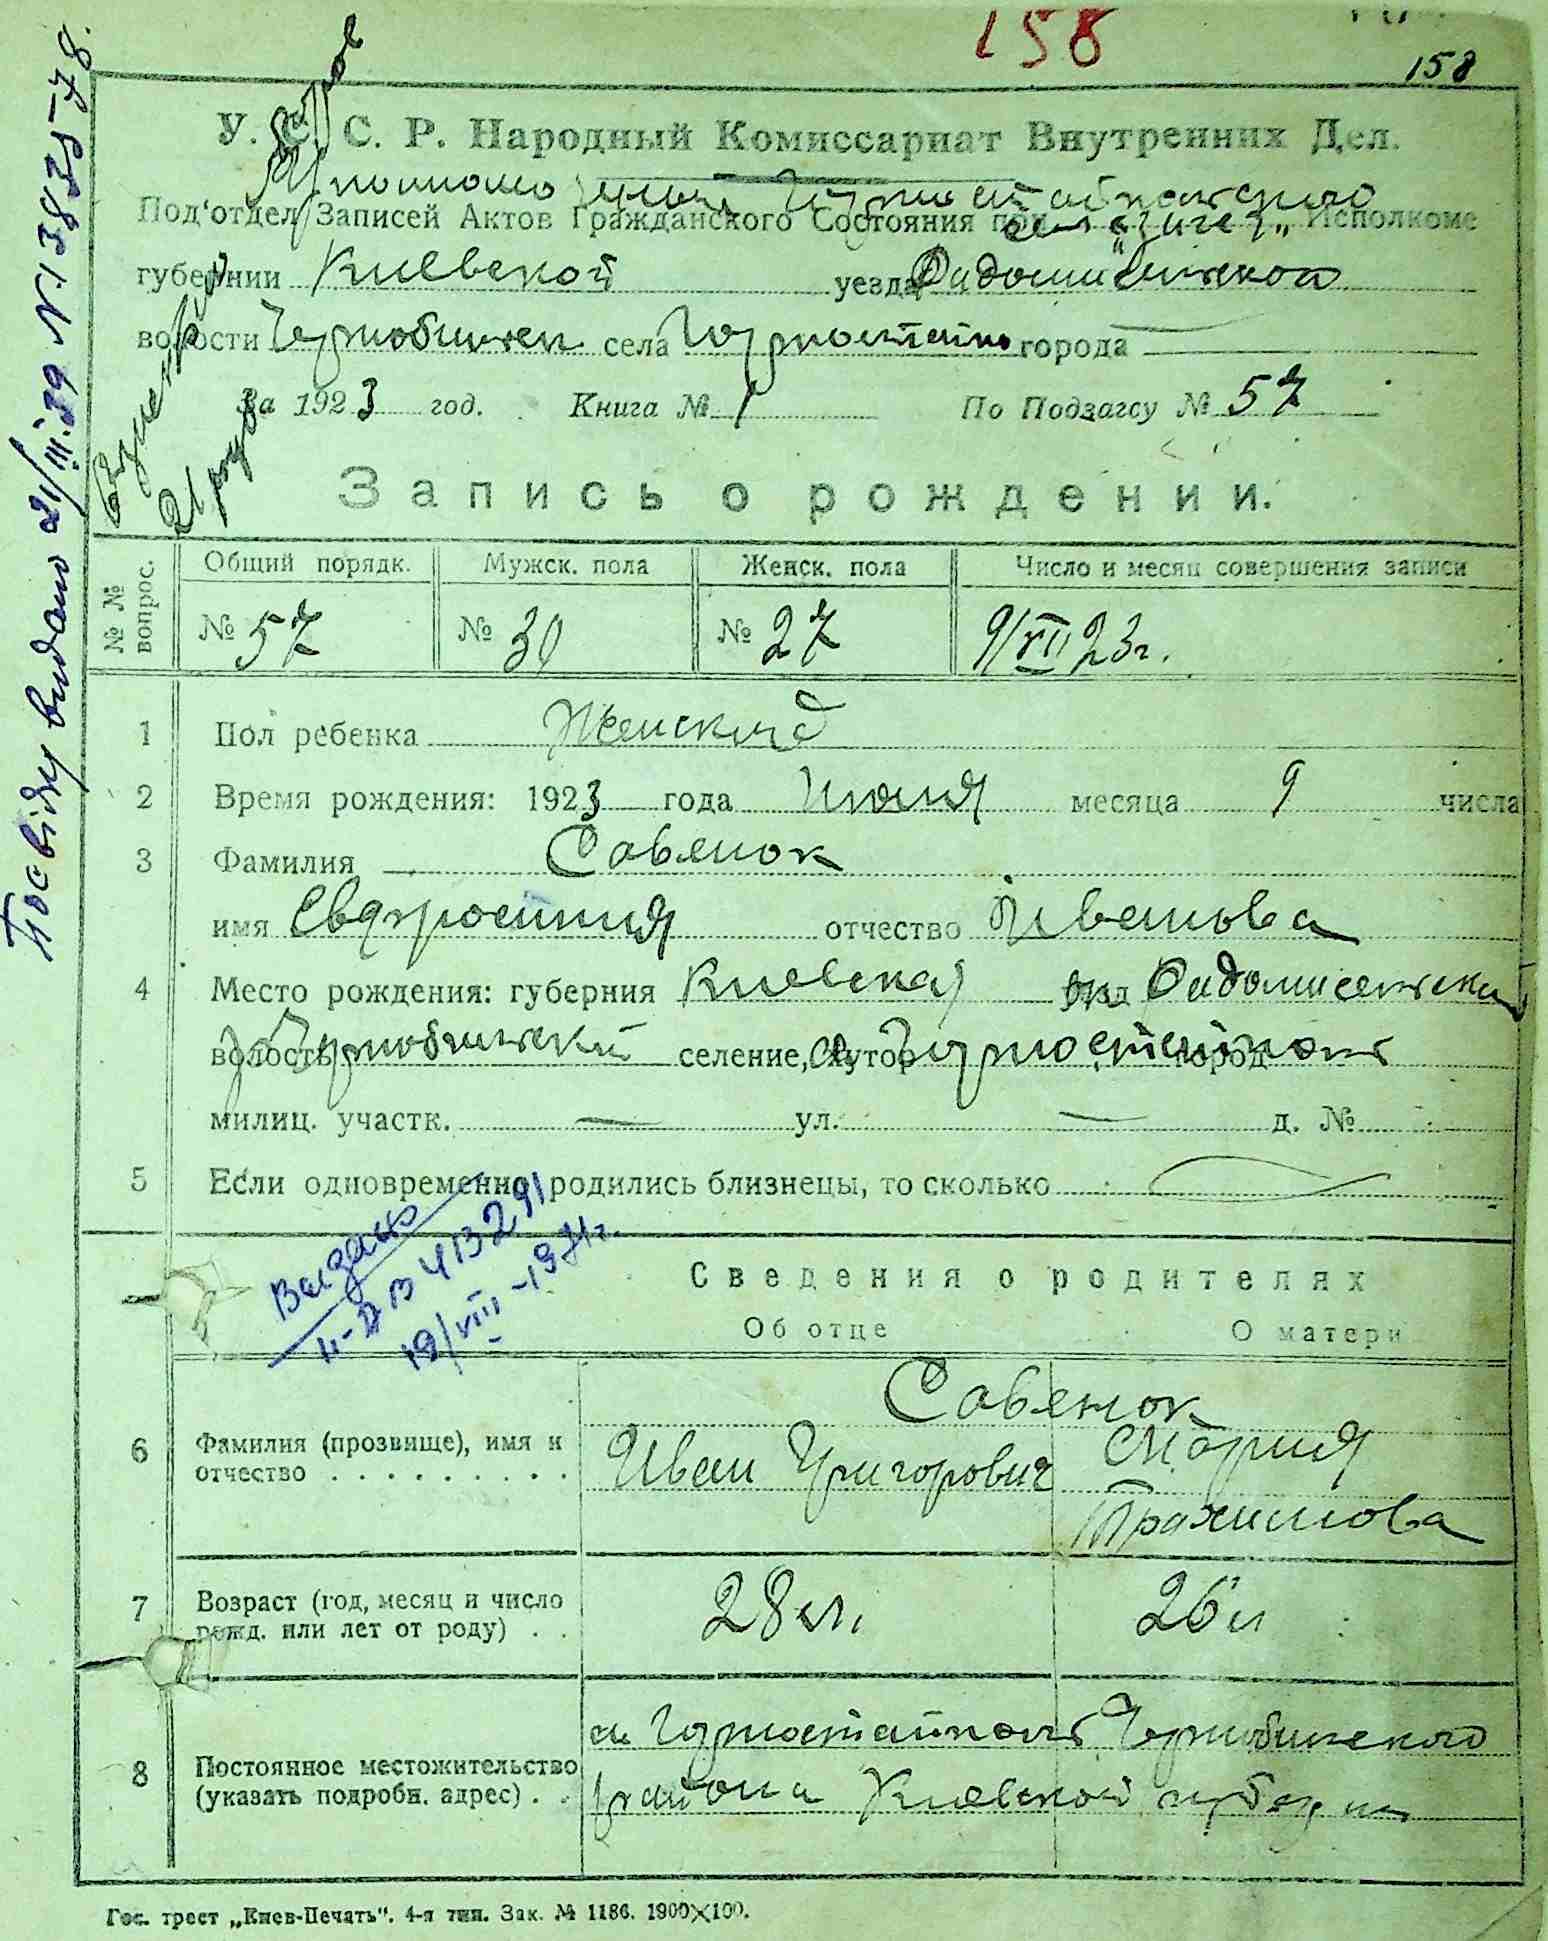 158
158
У. С. С. Р. Народный Комиссариат Внутренних Дел.
Под'отдел Записей Актов Гражданского Состояния при "Загс" Исполкоме
губернии Киевской уезда Радомышльской
волости Чернобыльск села Горностайполь города —
За 1923 год. Книга № 1 По Подзагсу № 57
Запись о рождении.
№ № вопрос.
Общий порядк. Мужск. пола Женск. пола Число и месяц совершения записи
№ 57 № 30 № 27 9/VII 23 г.
1 Пол ребенка Женский
2 Время рождения: 1923 года июля месяца 9 числа
3 Фамилия Савенок
имя Евдокия отчество Иванова
4 Место рождения: губерния Киевская уезд Радомысльский
волость Чернобыльский селение, хутор Горностайполь город
милиц. участк. — ул. — д. №
5 Если одновременно родились близнецы, то сколько
Выдано
II-ЯВ 413291
19/VIII-1971г.
Сведения о родителях
Об отце О матери
Савенок
6 Фамилия (прозвище), имя и отчество Иван Григорович Мария
Трохимова
7 Возраст (год, месяц и число рожд. или лет от роду) 28 л. 26 л
8 Постоянное местожительство (указать подробн. адрес) с. Горностайполь Чернобыльского
района Киевской губернии
Гос. трест „Киев-Печать". 4-я тип. Зак. № 1186. 1900×100.
Посвідку видано 21/III.39 № 1383578.